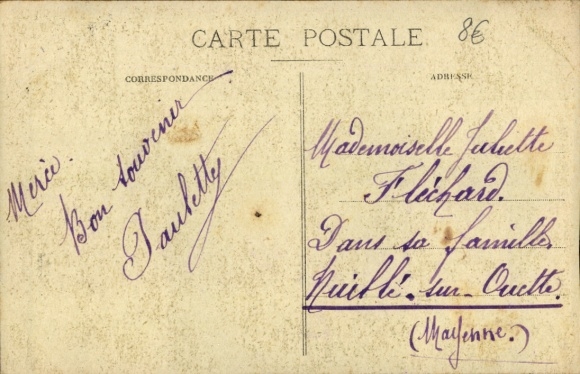 CARTE POSTALE
8€
CORRESPONDANCE
ADRESSE
Merci.
Bon souvenir
Mademoiselle Juliette
Fléchard.
Dans sa famille
Nuillé-sur-Ouette.
(Mayenne.)